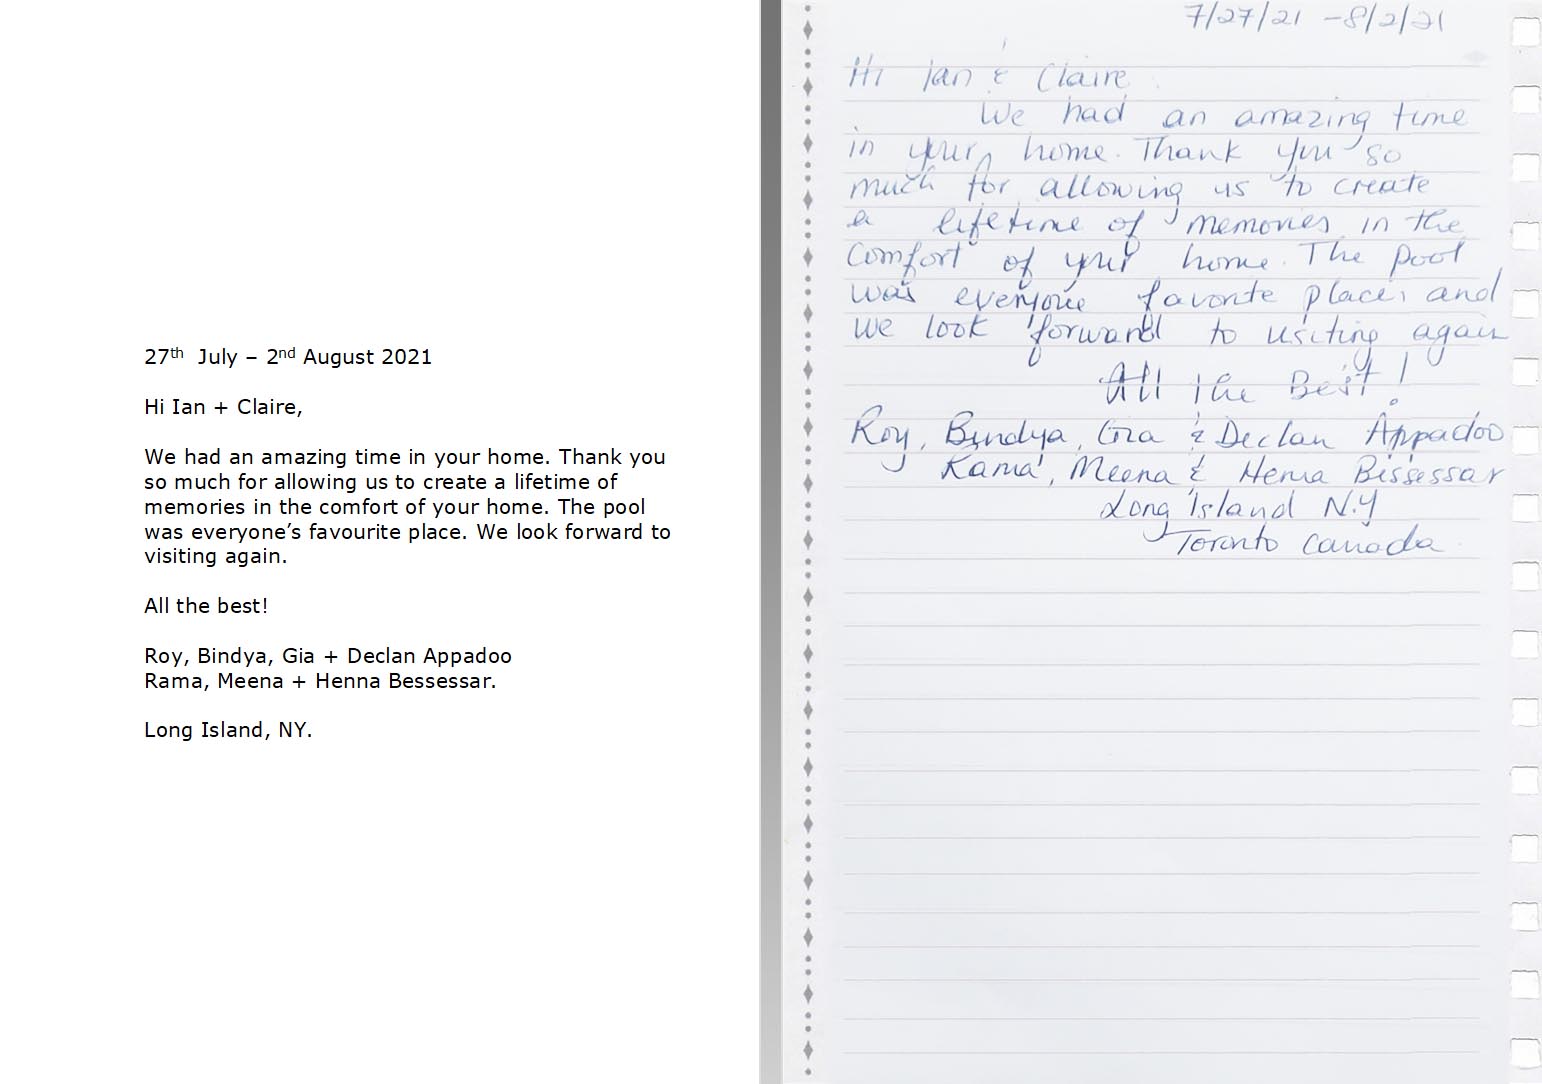 27th July – 2nd August 2021
Hi Ian + Claire,
We had an amazing time in your home. Thank you
so much for allowing us to create a lifetime of
memories in the comfort of your home. The pool
was everyone’s favourite place. We look forward to
visiting again.
All the best!
Roy, Bindya, Gia + Declan Appadoo
Rama, Meena + Henna Bessessar.
Long Island, NY.
7/27/21 - 8/2/21
Hi Ian & Claire
We had an amazing time
in your home. Thank you so
much for allowing us to create
a lifetime of memories in the
comfort of your home. The pool
was everyone favorite place, and
we look forward to visiting again
All the Best!
Roy, Bindya, Gia & Declan Appadoo
Rama, Meena & Hema Bissessar
Long Island N.Y
Toronto Canada